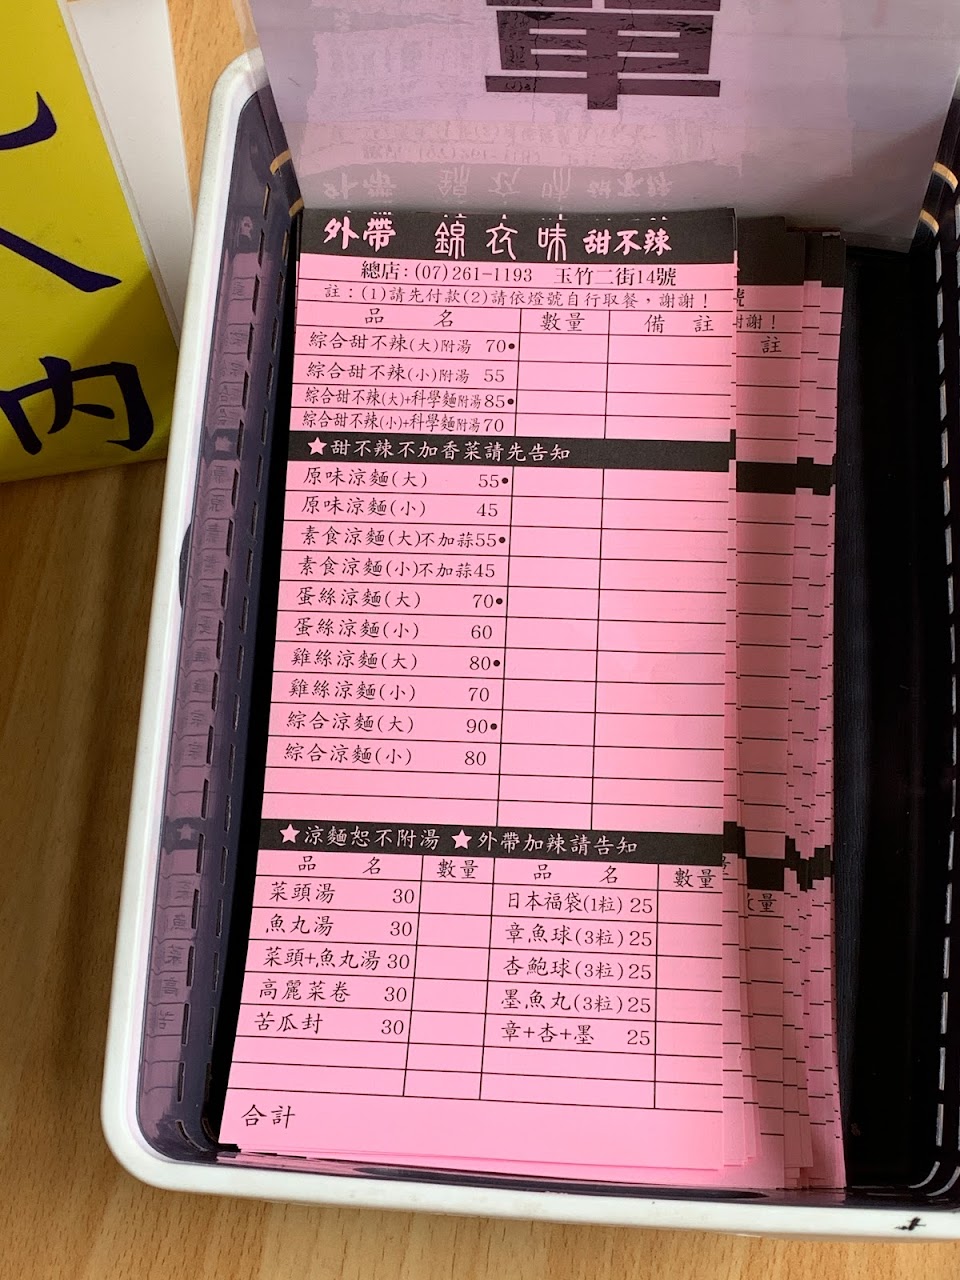 單
內
外帶 錦衣味 甜不辣
總店：(07)261-1193 玉竹二街14號
註：(1)請先付款(2)請依燈號自行取餐，謝謝！
品 名 數量 備 註
綜合甜不辣(大)附湯 70•
綜合甜不辣(小)附湯 55
綜合甜不辣(大)+科學麵附湯85•
綜合甜不辣(小)+科學麵附湯70
★甜不辣不加香菜請先告知
原味涼麵(大) 55•
原味涼麵(小) 45
素食涼麵(大)不加蒜55•
素食涼麵(小)不加蒜45
蛋絲涼麵(大) 70•
蛋絲涼麵(小) 60
雞絲涼麵(大) 80•
雞絲涼麵(小) 70
綜合涼麵(大) 90•
綜合涼麵(小) 80
★涼麵恕不附湯 ★外帶加辣請告知
品 名 數量 品 名 數量
菜頭湯 30 日本福袋(1粒) 25
魚丸湯 30 章魚球(3粒) 25
菜頭+魚丸湯 30 杏鮑球(3粒) 25
高麗菜卷 30 墨魚丸(3粒) 25
苦瓜封 30 章+杏+墨 25
合計